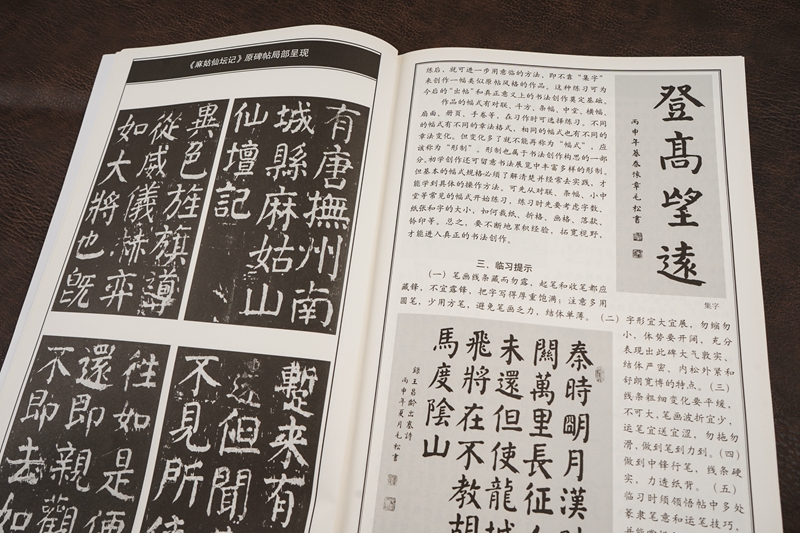 《麻姑仙坛记》原碑帖局部呈现
有唐撫州南
城縣麻姑山
仙壇記
異色旌旗導
從威儀赫弈
如大將也既
蹔來有
但聞
不見所
往如是便
還即親觀
不即去如
练后，就可进一步用意临的方法，即不靠“集字”
来创作一幅类似原帖风格的作品。这种练习可为
今后的“出帖”和真正意义上的书法创作奠定基础。
作品的幅式有对联、斗方、条幅、中堂、横幅、
扇面、册页、手卷等，在习作时可选择练习。不同
的幅式有不同的章法格式，相同的幅式也有不同的
章法变化。但变化多了就不能再称为“幅式”，应
该称为“形制”。形制也属于书法创作构思的一部
分，初学创作还可留意书法展览中丰富多样的形制，
但基本的幅式规格必须了解清楚并经常去实践，才
能学到具体的操作方法，可先从对联、条幅、小中
堂等常见的幅式开始练习，练习时先要考虑字数、
纸张和字的大小，如何裁纸、折格、画格、落款、
钤印等。总之，要不断地累积经验，拓宽视野，
才能进入真正的书法创作。
登高望遠
丙申年暮春怀章毛松書
集字
三、临习提示
（一）笔画线条藏而勿露，起笔和收笔都应
藏锋，不宜露锋，把字写得厚重饱满；注意多用
圆笔，少用方笔，避免笔画乏力，结体单薄。（二）
字形宜大宜展，勿缩勿
小，体势要开阔，充分
表现出此碑大气敦实、
结体严密、内松外紧和
舒朗宽博的特点。（三）
线条粗细变化要平缓，
不可大，笔画波折宜少，
运笔宜送宜涩，勿拖勿
滑，做到笔到力到。（四）
做到中锋行笔，线条硬
实，力透纸背。（五）
临习时须领悟帖中多处
篆隶笔意和运笔技巧，
秦時明月漢時
關萬里長征人
未還但使龍城
飛將在不教胡
馬度陰山
錄王昌齡出塞詩
丙申年夏月毛松書